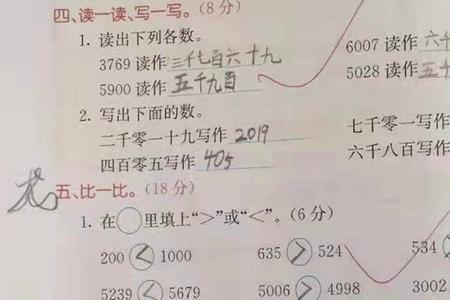 四、读一读、写一写。(8分)
1. 读出下列各数。
3769 读作 三千七百六十九 6007 读作 六千
5900 读作 五千九百 5028 读作 五千
2. 写出下面的数。
二千零一十九写作 2019 七千零一写作
四百零五写作 405 六千八百写作
五、比一比。(18分)
1. 在○里填上“>”或“<”。(6分)
200 < 1000 635 > 524 534
5239 < 5679 5006 > 4998 3002